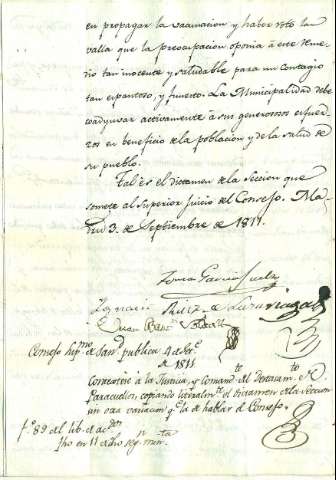 en propagar la vacunacion y haber roto la
valla que la preocupacion oponia á este reme-
dio tan inocente y saludable para un contagio
tan espantoso, y funesto. La Municipalidad debe
coadyuvar activamente á sus generosos esfuer-
zos en beneficio de la poblacion y de la salud de
su pueblo.
Tal es el dictamen de la Seccion que
somete al Superior juicio del Consejo. Ma-
drid 3. de Septiembre de 1811.
Tomas Garcia Suelto
Ignacio Ruiz de Luzuriaga
Juan Bautª
Consejo Supmo de sand publica 4 de Sere
de 1811
Contextese á la Justicia, y Comandte del Destacamto de
Paracuellos, copiando literalmte el dictamen de la Seccion
sin otra variacion que la de hablar el Consejo.
fº 89 del lib. de acdos
fho en 11 de ho segn minta